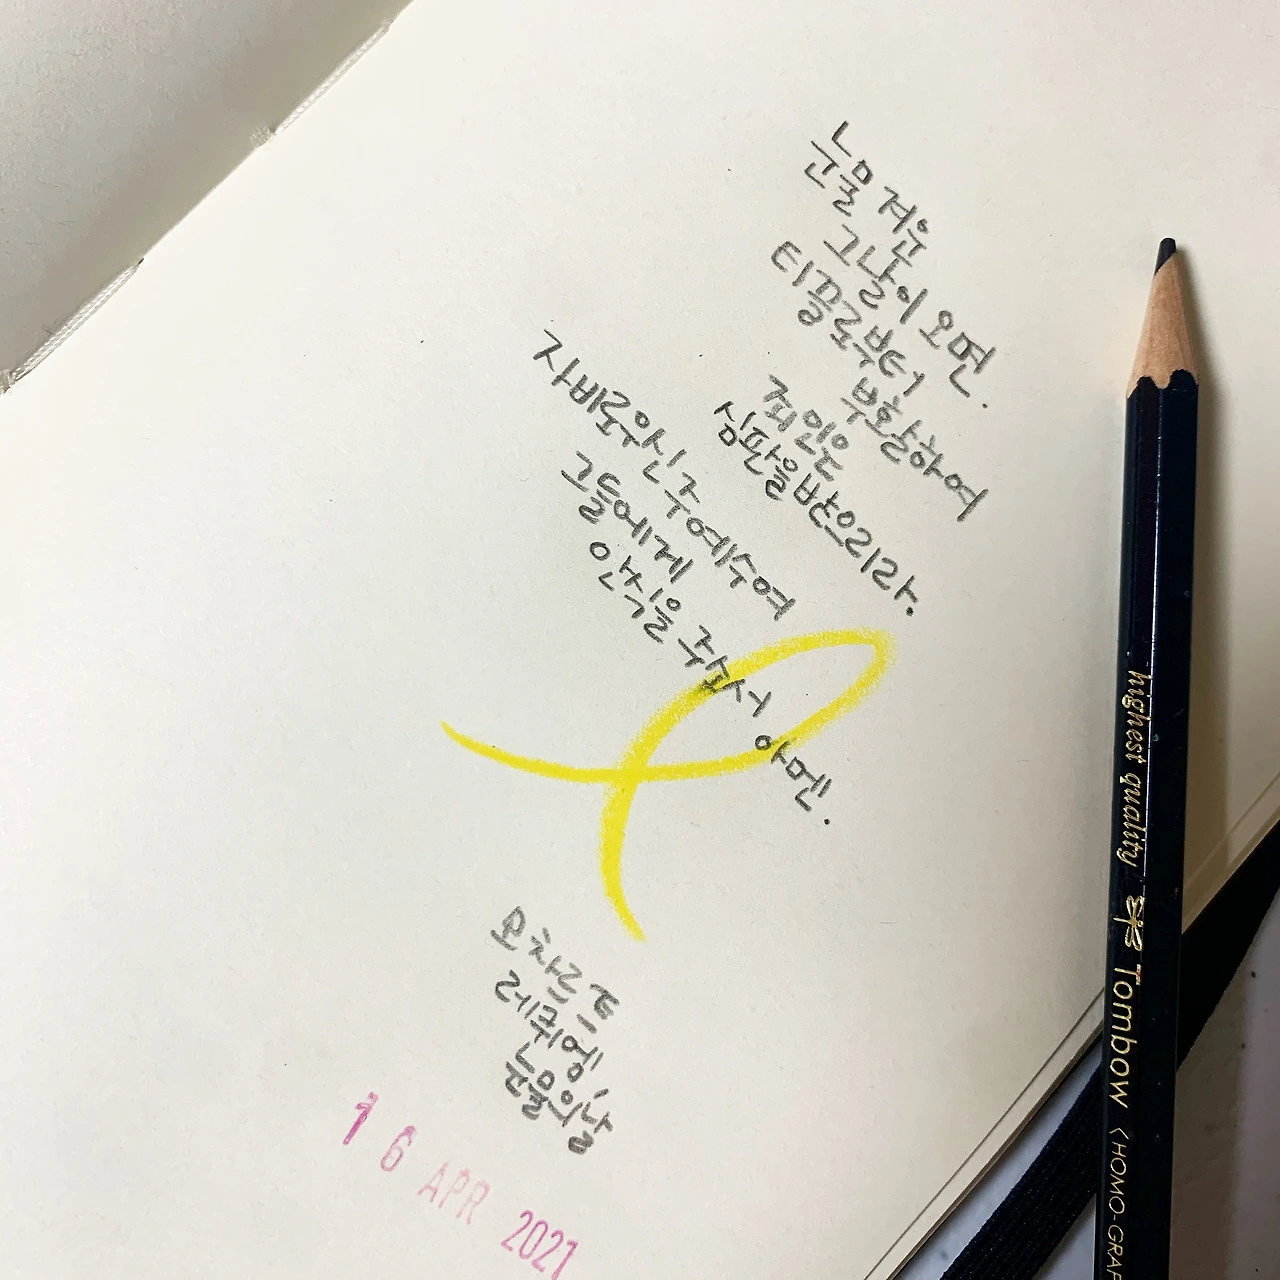 눈물 겨운
그날이 오면.
티끌로부터
부활하여
죄인은
심판을 받으리라.
자비로우신 주 예수여
그들에게
안식을 주소서
아멘.
모차르트
레퀴엠,
눈물의 날
16 APR 2021
highest quality Tombow <HOMO-GRAP